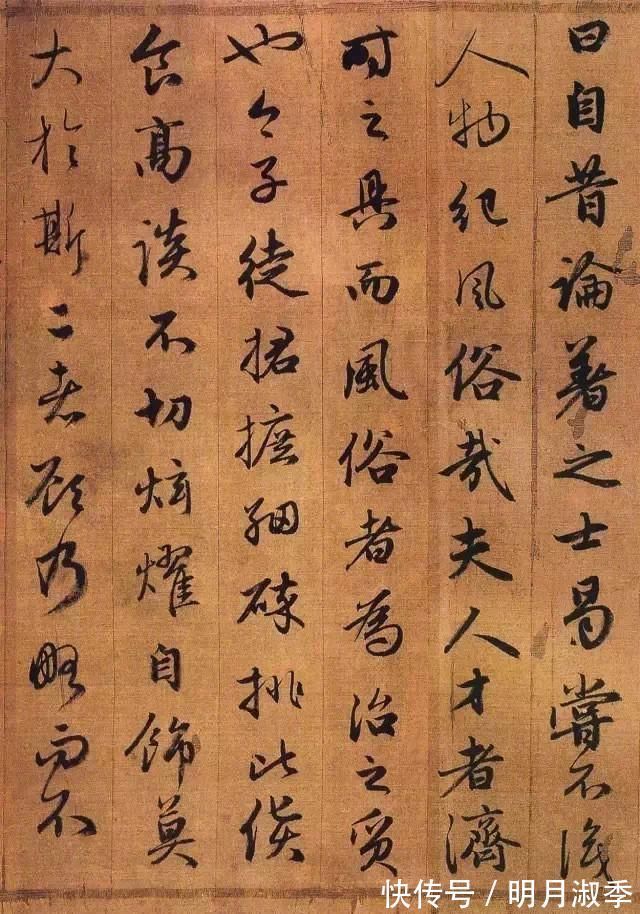 曰自昔論著之士曷嘗不
人物紀風俗哉夫人才者濟
时之具而風俗者為治之質
也今子徒捃摭細碎排比貨
食高談不切炫耀自飾莫
大於斯二者顾乃略而不
快传号／明月淑季